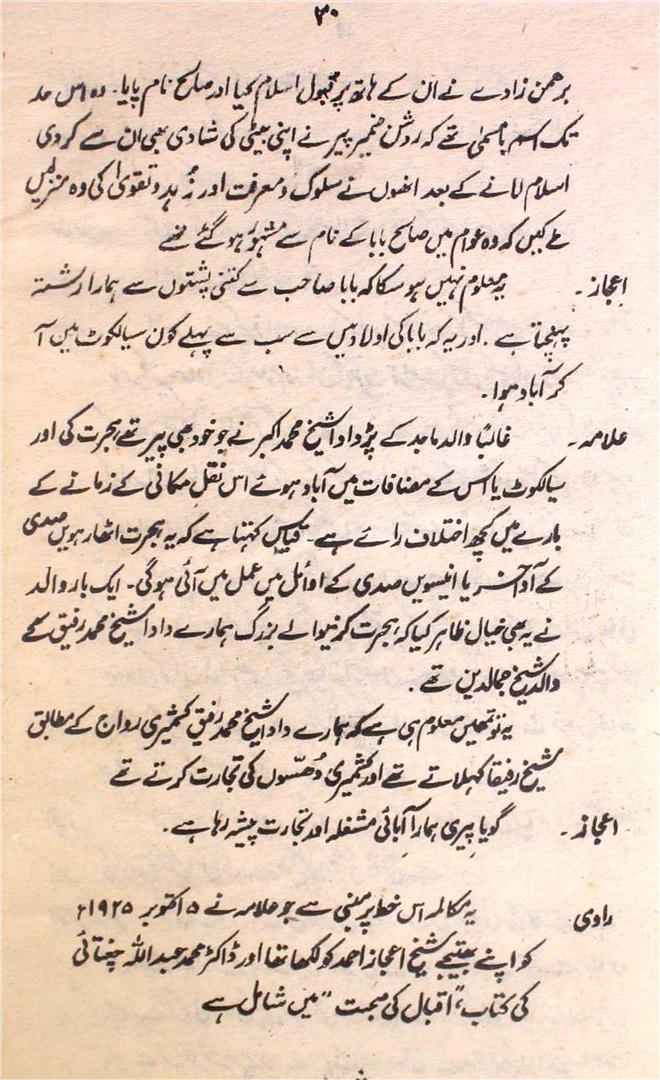 ۳۰
برھمن زادے نے ان کے ہاتھ پر قبول اسلام کیا اور صالح نام پایا۔ وہ اس حد
تک اسم بامسمیٰ تھے کہ روشن ضمیر پیر نے اپنی بیٹی کی شادی بھی ان سے کر دی
اسلام لانے کے بعد انھوں نے سلوک و معرفت اور زُہد و تقویٰ کی وہ منزلیں
طے کیں کہ وہ عوام میں صالح بابا کے نام سے مشہور ہو گئے تھے
اعجاز۔ یہ معلوم نہیں ہو سکا کہ بابا صاحب سے کتنی پشتوں سے ہمارا رشتہ
پہنچتا ہے۔ اور یہ کہ بابا کی اولاد میں سے سب سے پہلے کون سیالکوٹ میں آ
کر آباد ہوا۔
علامہ۔ غالباً والد ماجد کے پڑدادا شیخ محمد اکبر نے جو خود بھی پیر تھے ہجرت کی اور
سیالکوٹ یا اس کے مضافات میں آباد ہوئے اس نقل مکانی کے زمانے کے
بارے میں کچھ اختلاف رائے ہے۔ قیاس کہتا ہے کہ یہ ہجرت اٹھارہویں صدی
کے آواخر یا انیسویں صدی کے اوائل میں عمل میں آئی ہوگی۔ ایک بار والد
نے یہ بھی خیال ظاہر کیا کہ ہجرت کرنیوالے بزرگ ہمارے دادا شیخ محمد رفیق کے
والد شیخ جمالدین تھے۔
یہ تو تمھیں معلوم ہی ہے کہ ہمارے دادا شیخ محمد رفیق کشمیری رواج کے مطابق
شیخ رفیقا کہلاتے تھے اور کشمیری دُھسّوں کی تجارت کرتے تھے
اعجاز۔ گویا پیری ہمارا آبائی مشغلہ اور تجارت پیشہ رہا ہے۔
راوی یہ مکالمہ اس خط پر مبنی ہے جو علامہ نے ۵ اکتوبر ۱۹۲۵ء
کو اپنے بھتیجے شیخ اعجاز احمد کو لکھا تھا اور ڈاکٹر محمد عبداللہ چغتائی
کی کتاب "اقبال کی صحبت" میں شامل ہے